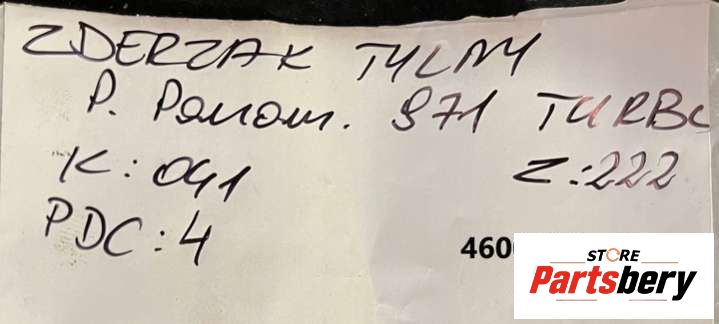 ZDERZAK TYLNY
P. Panam. 971 TURBO
K: 041 Z: 222
PDC: 4
460
STORE
Partsbery